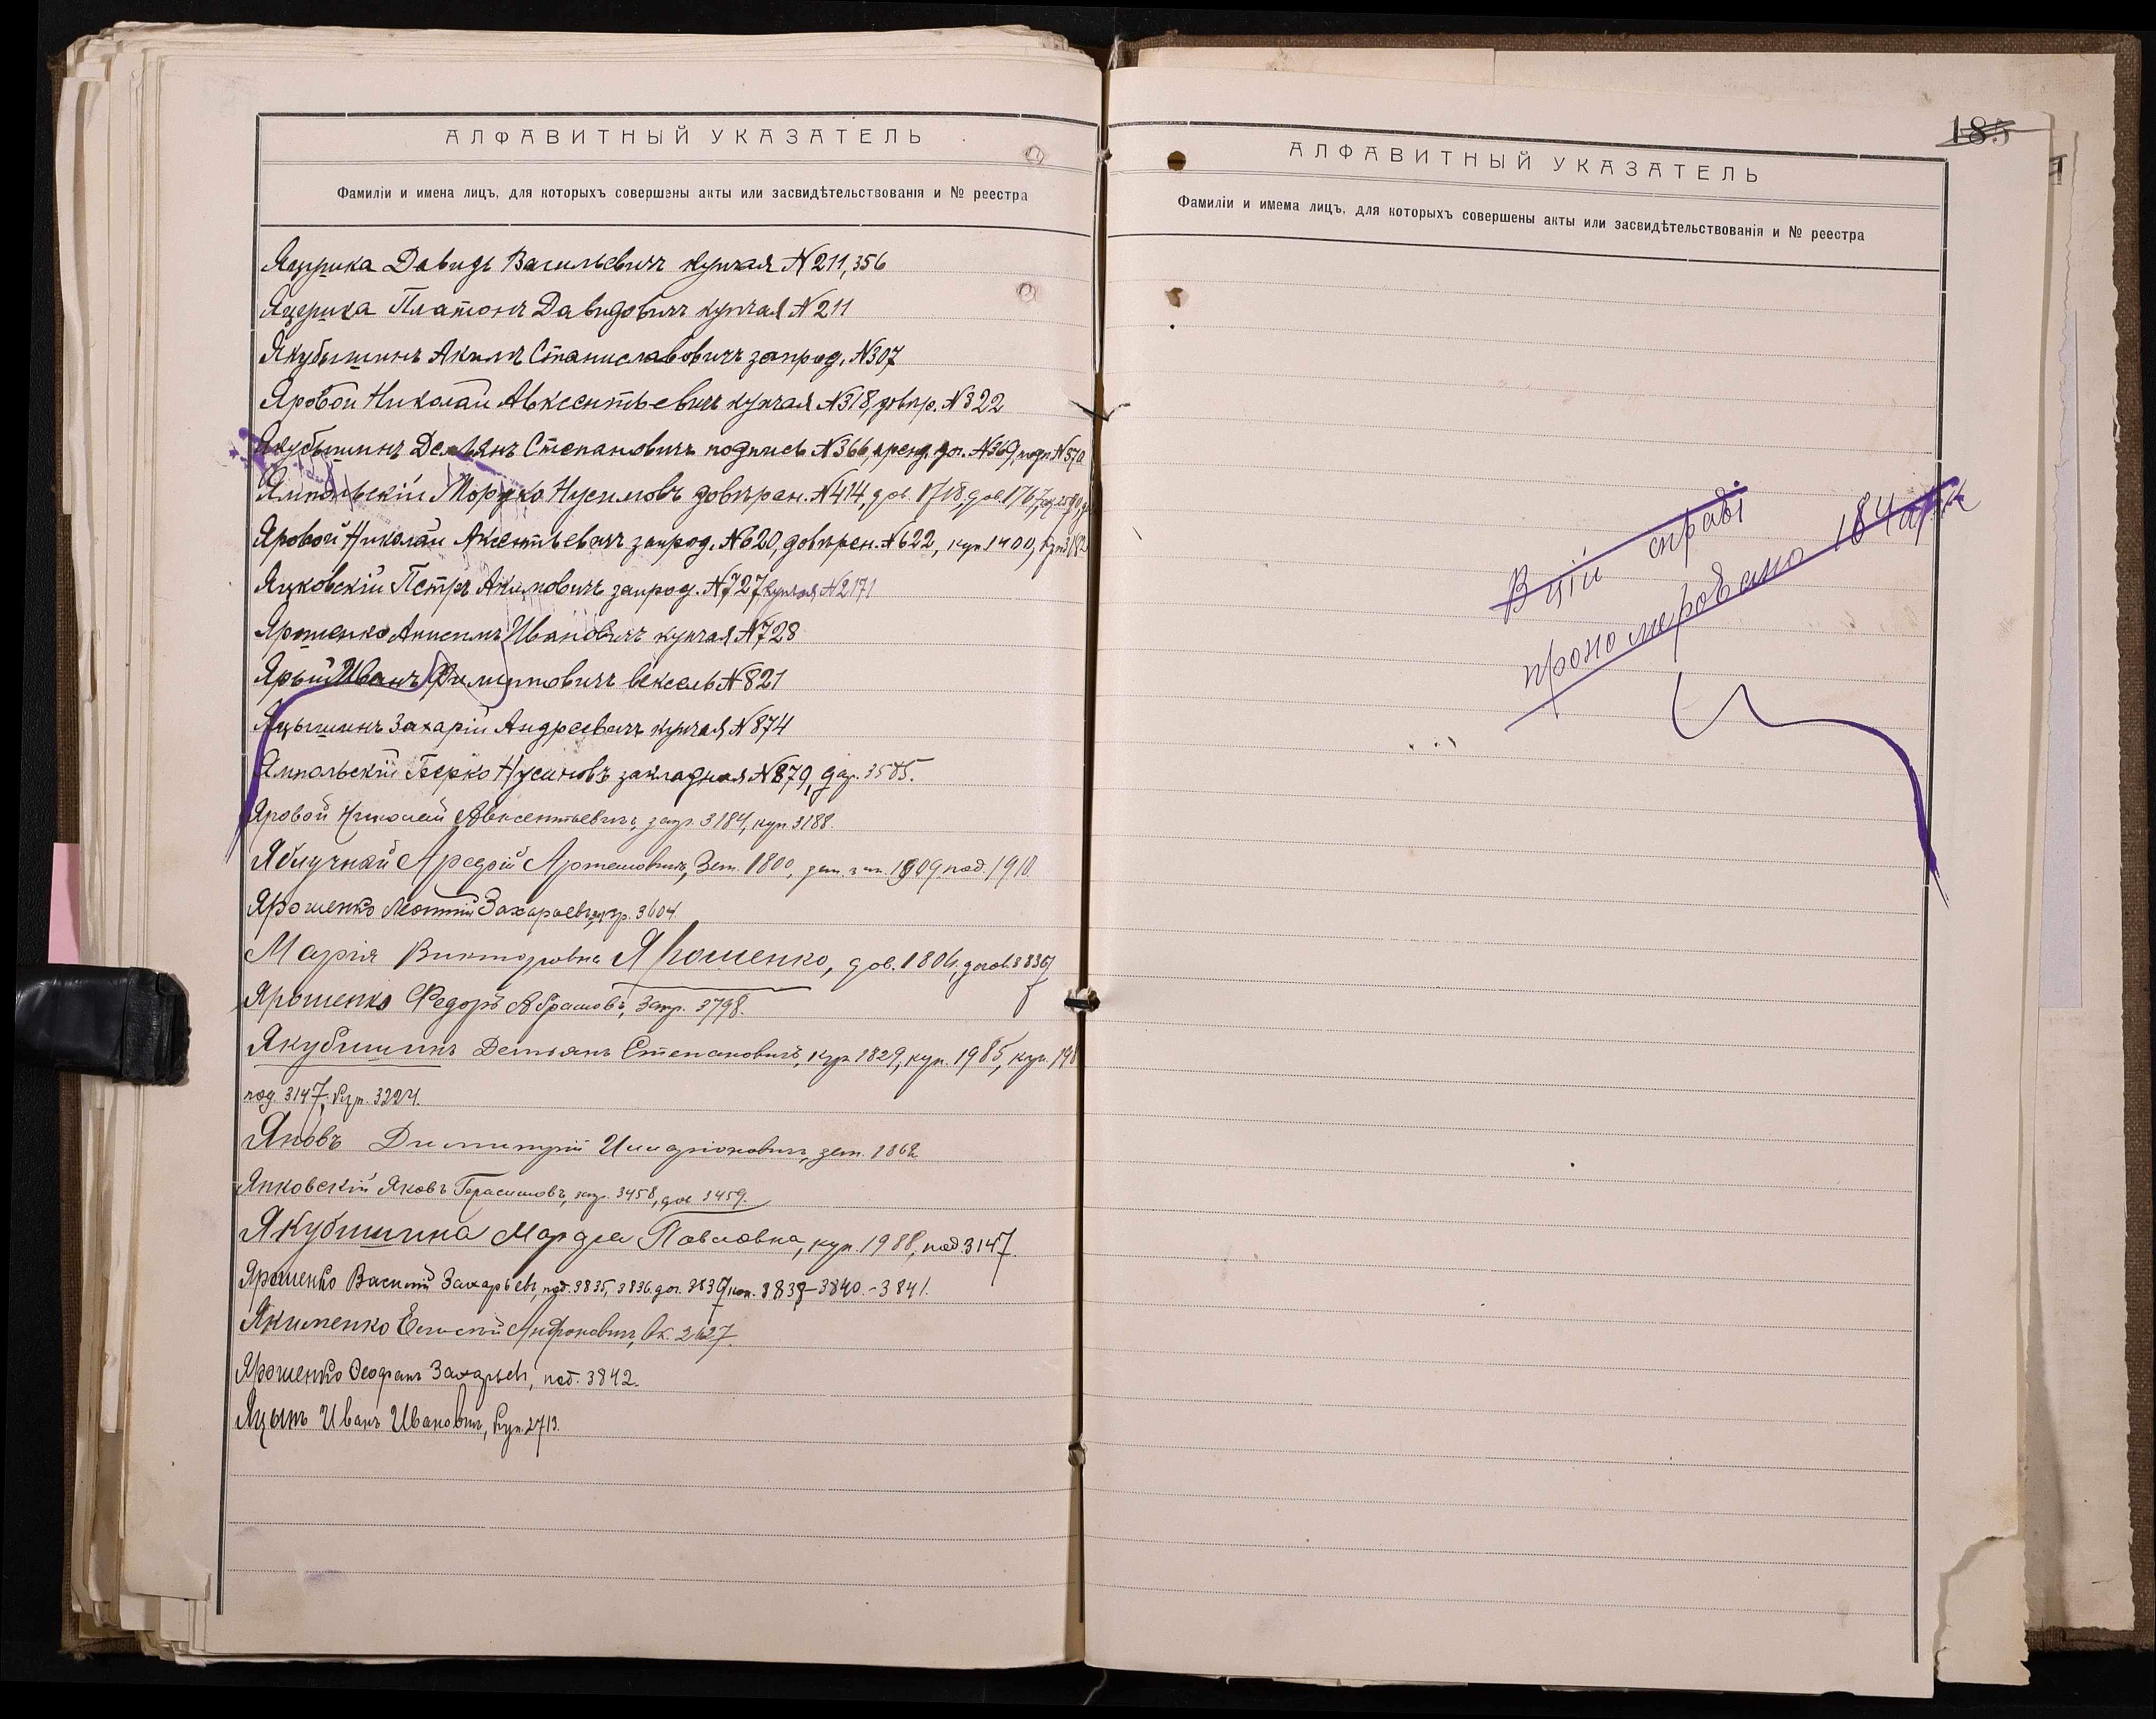 АЛФАВИТНЫЙ УКАЗАТЕЛЬ
Фамиліи и имена лицъ, для которыхъ совершены акты или засвидѣтельствованія и № реестра
Яцурика Давидъ Васильевичъ купчая N 211, 356
Яцурика Платонъ Давидовичъ купчая N 211
Якубышинъ Акимъ Станиславовичъ запрод. N 307
Яровой Николай Авксентьевичъ купчая N 318, довѣр. N 322
Якубышинъ Демьянъ Степановичъ подпись N 366, аренд. дог. N 369, подп N 370
Ямпольскій Мордко Нусимовъ довѣрен. N 414, дов. 1718, дов. 1767,
Яровой Николай Аксентьевичъ запрод. N 620, довѣрен. N 622, куп 1400,
Яцковскій Петръ Акимовичъ запрод. N 727 купчая N 2171
Ярошенко Анисимъ Ивановичъ купчая N 728
Ярый Иванъ Филипповичъ вексель N 821
Яцышинъ Захарій Андреевичъ купчая N 874
Ямпольскій Берко Нусимовъ закладная N 879, 3585.
Яровой Николай Авксентьевичъ, запр. 3184, куп. 3188.
Яблучный Артемовичъ, 1800, 1909, под. 1910.
Ярошенко Леонтій Захарьевъ, 3604.
Марія Викторовна Ярошенко, дов. 1804,
Ярошенко Федоръ Абрамовъ, запр. 3798.
Якубишинъ Демьянъ Степановичъ, куп 1829, куп. 1985, куп. 198
под. 3147, куп. 3224.
Яковъ Димитрій Илларіоновичъ, 1862
Янковскій Яковъ Герасимовъ, запр. 3458, дов. 3459.
Якубишина Марфа Павловна, куп. 1988, под. 3147.
Ярошенко Василій Захарьевъ, под. 3835, 3836, дог. 3837, 3838-3840.-3841.
Якименко Елисей Андроновичъ, вк. 2627.
Ярошенко Ѳеофанъ Захарьевъ, под. 3842.
Яцынъ Иванъ Ивановичъ, куп. 2713.
185
АЛФАВИТНЫЙ УКАЗАТЕЛЬ
Фамиліи и имема лицъ, для которыхъ совершены акты или засвидѣтельствованія и № реестра
В цій справі
прономеровано 184 арк